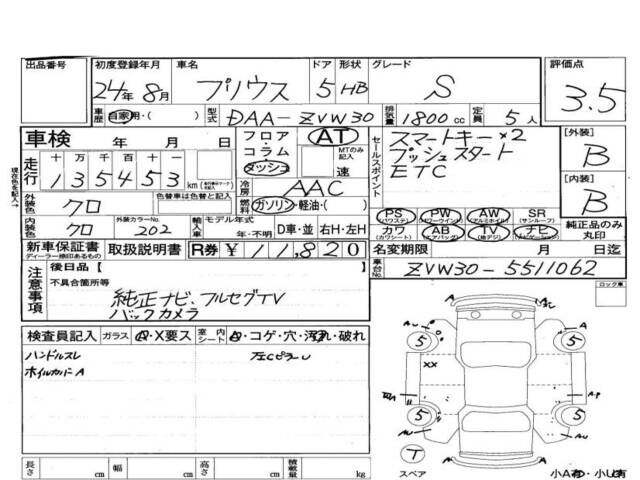 出品番号 初度登録年月 車名 ドア 形状 グレード 評価点
24年 8月 プリウス 5 HB S 3.5
車歴 自家用・( ) 型式 DAA-ZVW30 排気量 1800cc 定員 5人
車検 年 月 日 フロア・コラム ダッシュ AT MTのみ記入 速
走行 十 万 千 百 十 一
135453 km
冷房 AAC
燃料 ガソリン・軽油・( )
セールスポイント
スマートキー×2
プッシュスタート
ETC
[外装] B
[内装] B
現在の色を記入→
外装色 クロ 色替車は色替と記入
内装色 クロ 外装カラーNo. 202 輸入車 モデル年式 年・不明 D車・並 右H・左H
PS (パワステ) PW (パワーウインド) AW (アルミホイル) SR (サンルーフ)
カワ (カワシート) AB (エアバッグ) TV (地デジ) ナビ (ナビゲーション)
純正品のみ丸印
新車保証書 ディーラー捺印あるもの 取扱説明書 R券 ¥11,820
名変期限 月 日迄
車台No. ZVW30-5511062
ロック車
注意事項 後日品【 】
不具合箇所等
純正ナビ、フルセグTV
バックカメラ
検査員記入 ガラス A・X要ス 室内シート A・コゲ・穴・汚れ・破れ
ハンドルスレ 左Cピラー U
ホイルカバー A
5 5
XX
AP
5 5
T
スペア
小A有・小U有
長さ cm 幅 cm 高さ cm 積載量 kg